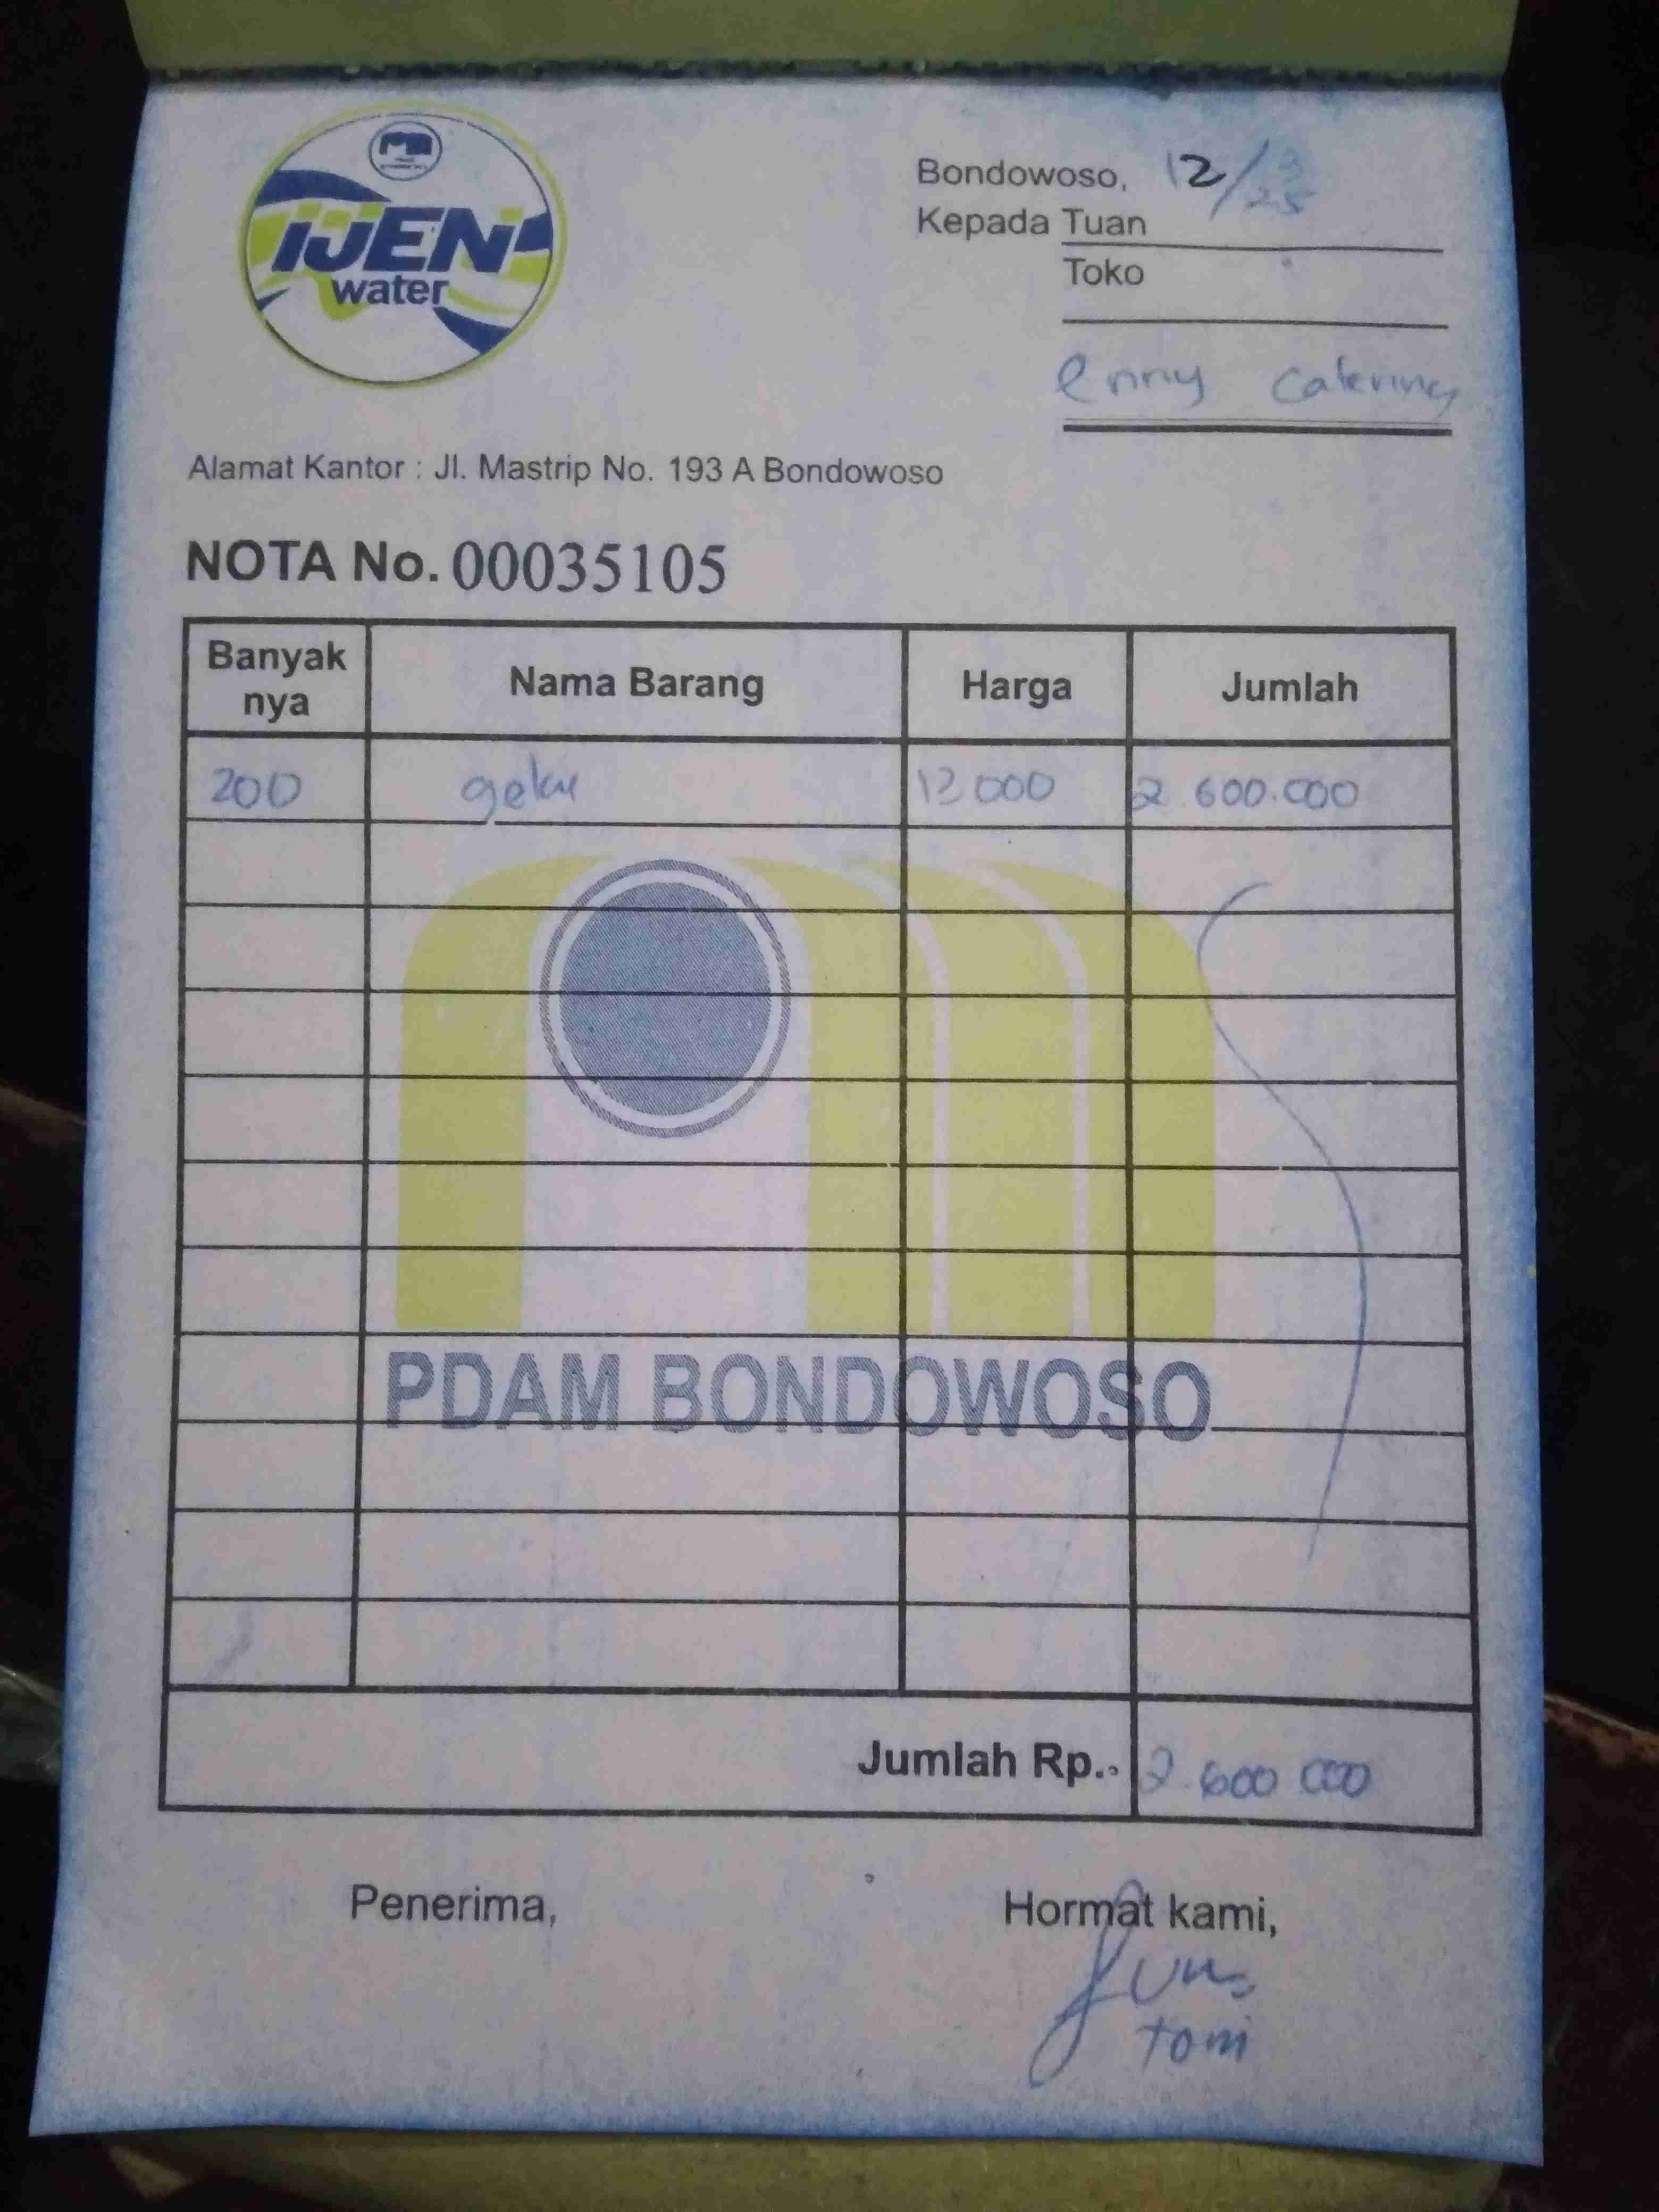 IJEN
water
Bondowoso, 12/3 25
Kepada Tuan
Toko
enny catering
Alamat Kantor : Jl. Mastrip No. 193 A Bondowoso
NOTA No. 00035105
Banyak nya Nama Barang Harga Jumlah
200 gelas 13 000 2 600.000
PDAM BONDOWOSO
Jumlah Rp.. 2.600 000
Penerima, Hormat kami,
toni